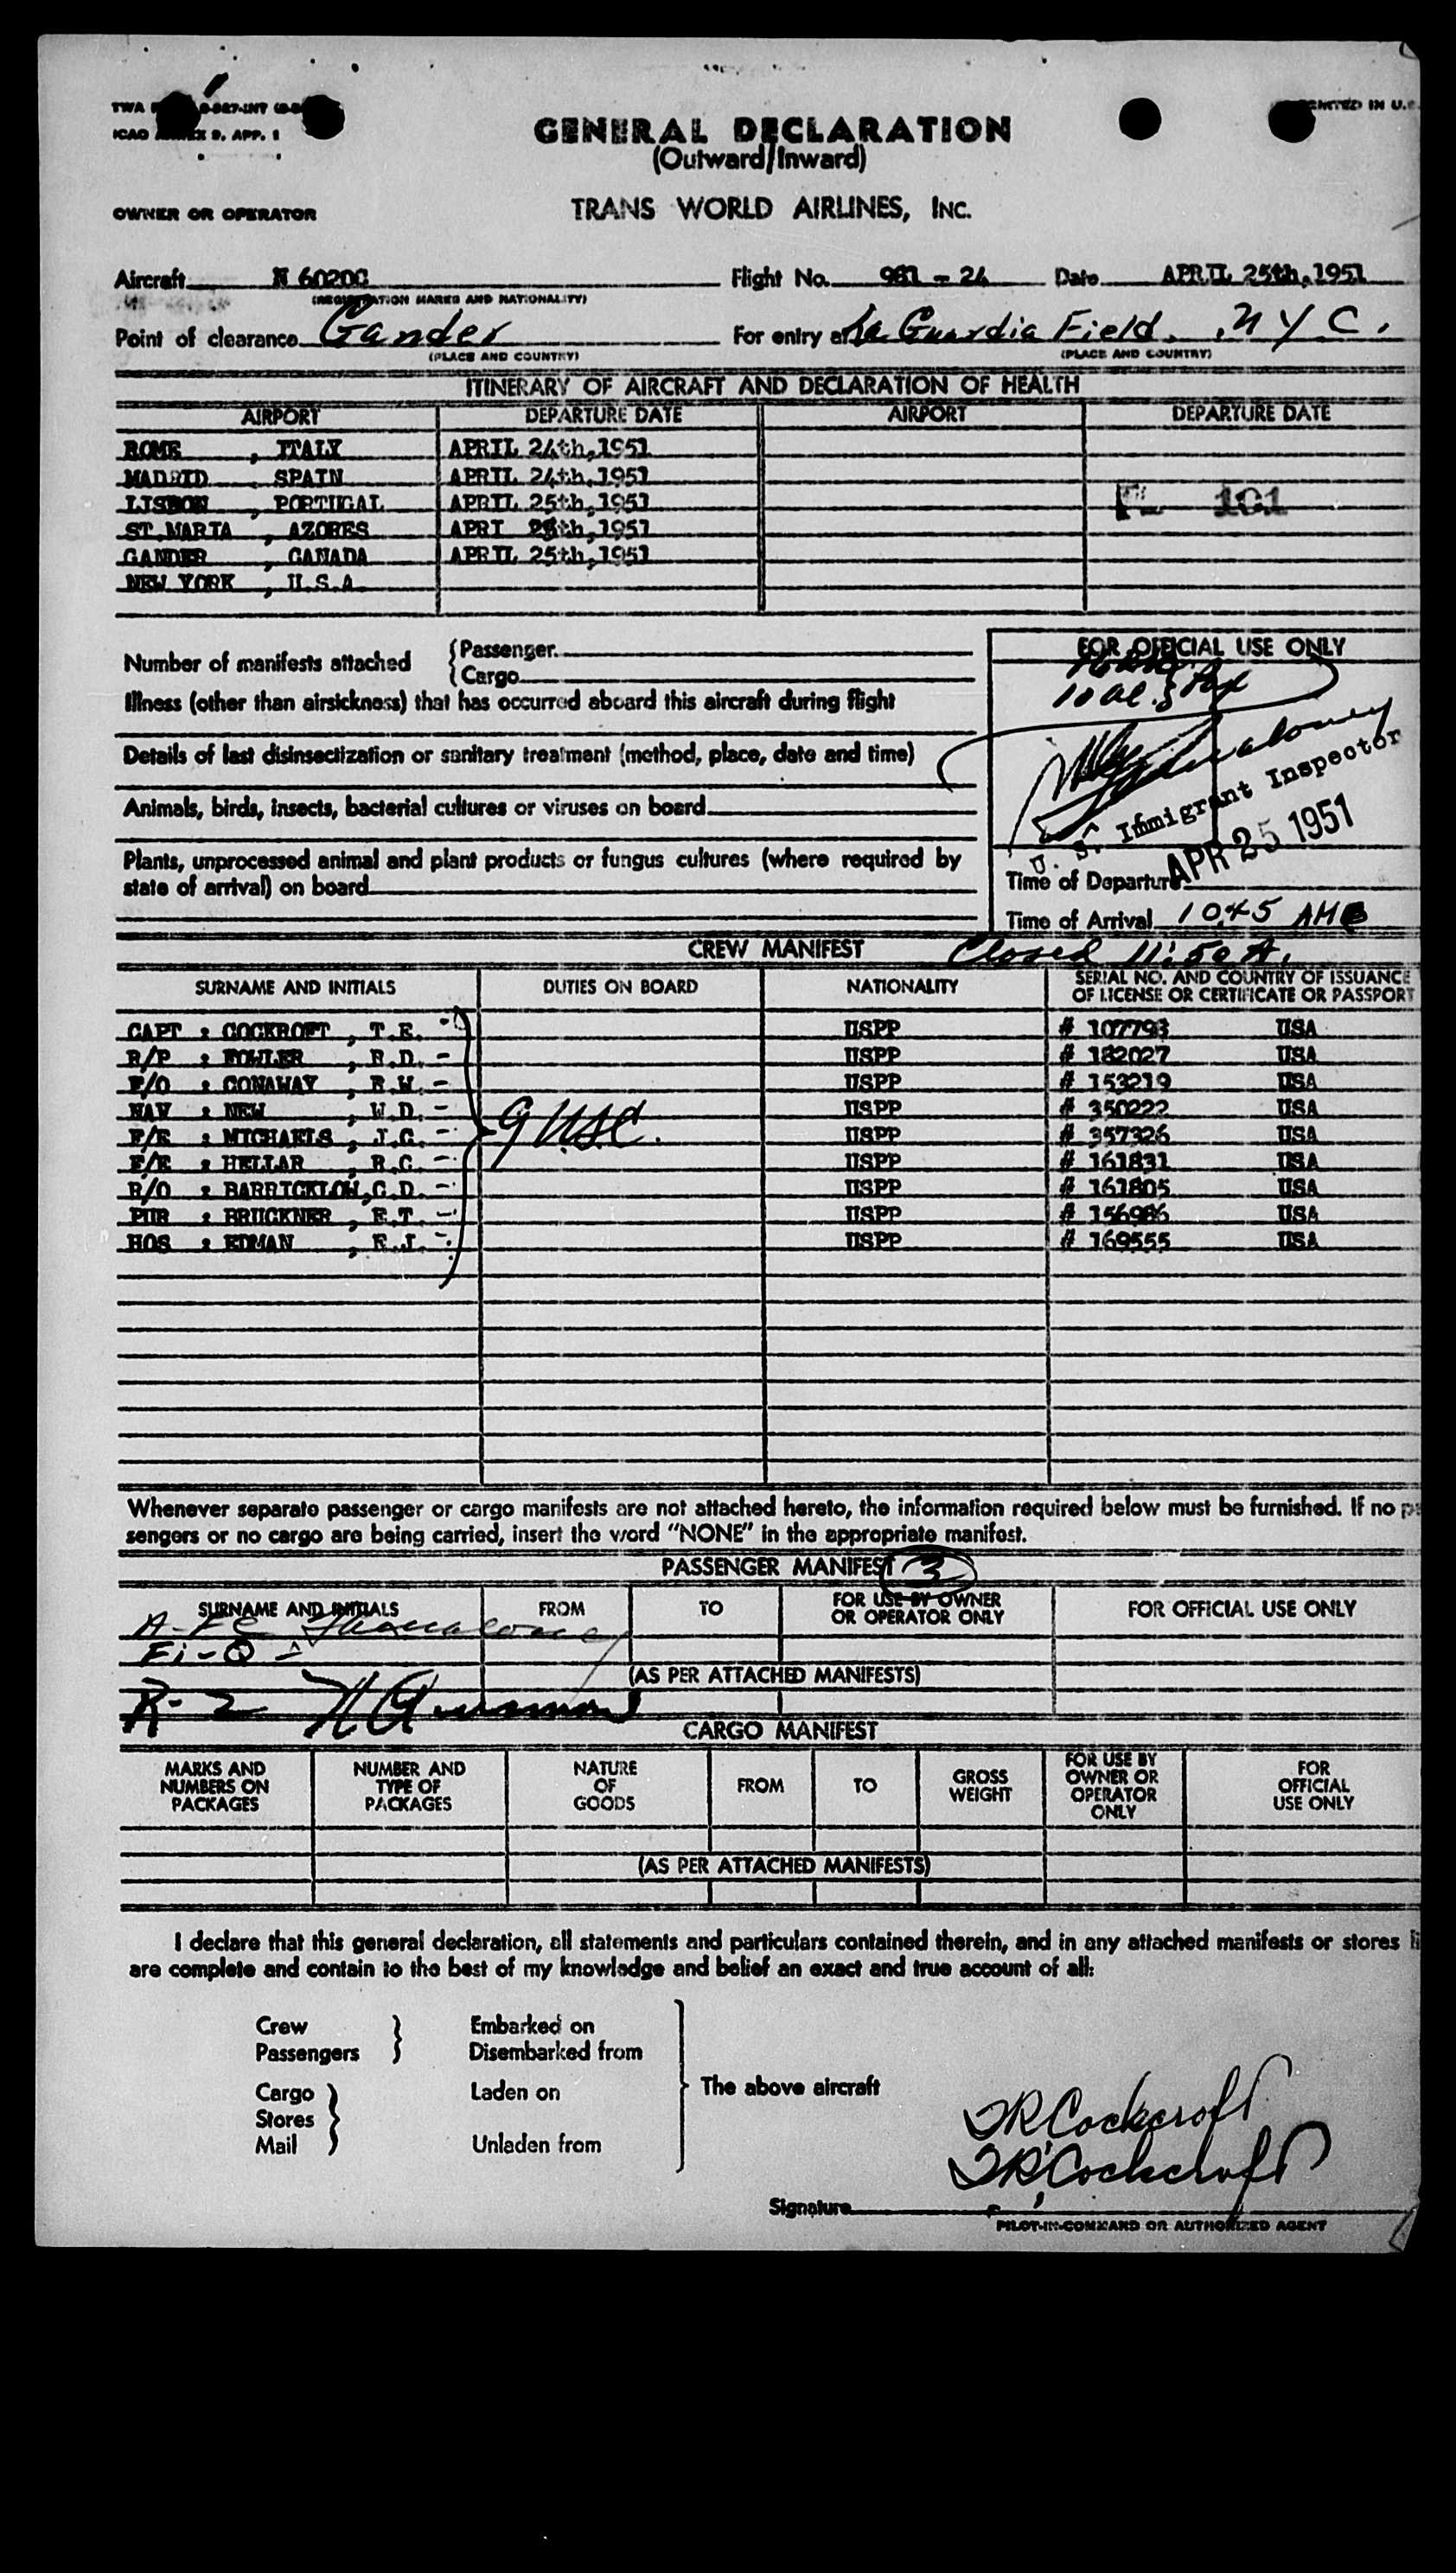 GENERAL DECLARATION
(Outward/Inward)
ICAO ANNEX 9, APP. 1
PRINTED IN U.S.
OWNER OR OPERATOR TRANS WORLD AIRLINES, INC.
Aircraft N 6020C Flight No. 961 - 24 Date APRIL 25th,1951
(REGISTRATION MARKS AND NATIONALITY)
Point of clearance Gander For entry at La Guardia Field, NYC.
(PLACE AND COUNTRY) (PLACE AND COUNTRY)
ITINERARY OF AIRCRAFT AND DECLARATION OF HEALTH
AIRPORT DEPARTURE DATE AIRPORT DEPARTURE DATE
ROME , ITALY APRIL 24th,1951
MADRID , SPAIN APRIL 24th,1951
LISBON , PORTUGAL APRIL 25th,1951 FL 101
ST.MARIA , AZORES APRI 25th,1951
GANDER , CANADA APRIL 25th,1951
NEW YORK , U.S.A.
Number of manifests attached {Passenger
{Cargo
Illness (other than airsickness) that has occurred aboard this aircraft during flight
Details of last disinsectization or sanitary treatment (method, place, date and time)
Animals, birds, insects, bacterial cultures or viruses on board
Plants, unprocessed animal and plant products or fungus cultures (where required by
state of arrival) on board
FOR OFFICIAL USE ONLY
U. S. Immigrant Inspector
APR 25 1951
Time of Departure
Time of Arrival 1045 AM
Closed 11:50 A.
CREW MANIFEST
SURNAME AND INITIALS DUTIES ON BOARD NATIONALITY SERIAL NO. AND COUNTRY OF ISSUANCE
OF LICENSE OR CERTIFICATE OR PASSPORT
CAPT : COCKROFT , T.R. - USPP # 107793 USA
R/P : FOWLER , R.D. - USPP # 182027 USA
F/O : CONAWAY , R.W. - USPP # 153219 USA
NAV : NEW , W.D. - USPP # 350222 USA
F/E : MICHAELS , J.G. - 9 USC. USPP # 357326 USA
F/E : HELLAR , R.C. - USPP # 161831 USA
R/O : BARRICKLOW,C.D. - USPP # 161805 USA
PUR : BRUCKNER , E.T. - USPP # 156986 USA
HOS : EDMAN , E.J. - USPP # 169555 USA
Whenever separate passenger or cargo manifests are not attached hereto, the information required below must be furnished. If no
sengers or no cargo are being carried, insert the word "NONE" in the appropriate manifest.
PASSENGER MANIFEST 3
SURNAME AND INITIALS FROM TO FOR USE BY OWNER
OR OPERATOR ONLY FOR OFFICIAL USE ONLY
(AS PER ATTACHED MANIFESTS)
R-2
CARGO MANIFEST
MARKS AND
NUMBERS ON
PACKAGES
NUMBER AND
TYPE OF
PACKAGES
NATURE
OF
GOODS
FROM
TO
GROSS
WEIGHT
FOR USE BY
OWNER OR
OPERATOR
ONLY
FOR
OFFICIAL
USE ONLY
(AS PER ATTACHED MANIFESTS)
I declare that this general declaration, all statements and particulars contained therein, and in any attached manifests or stores
are complete and contain to the best of my knowledge and belief an exact and true account of all:
Crew Embarked on
Passengers Disembarked from
The above aircraft
Cargo Laden on
Stores
Mail Unladen from
TR Cockcroft
TR Cockcroft
Signature
PILOT-IN-COMMAND OR AUTHORIZED AGENT